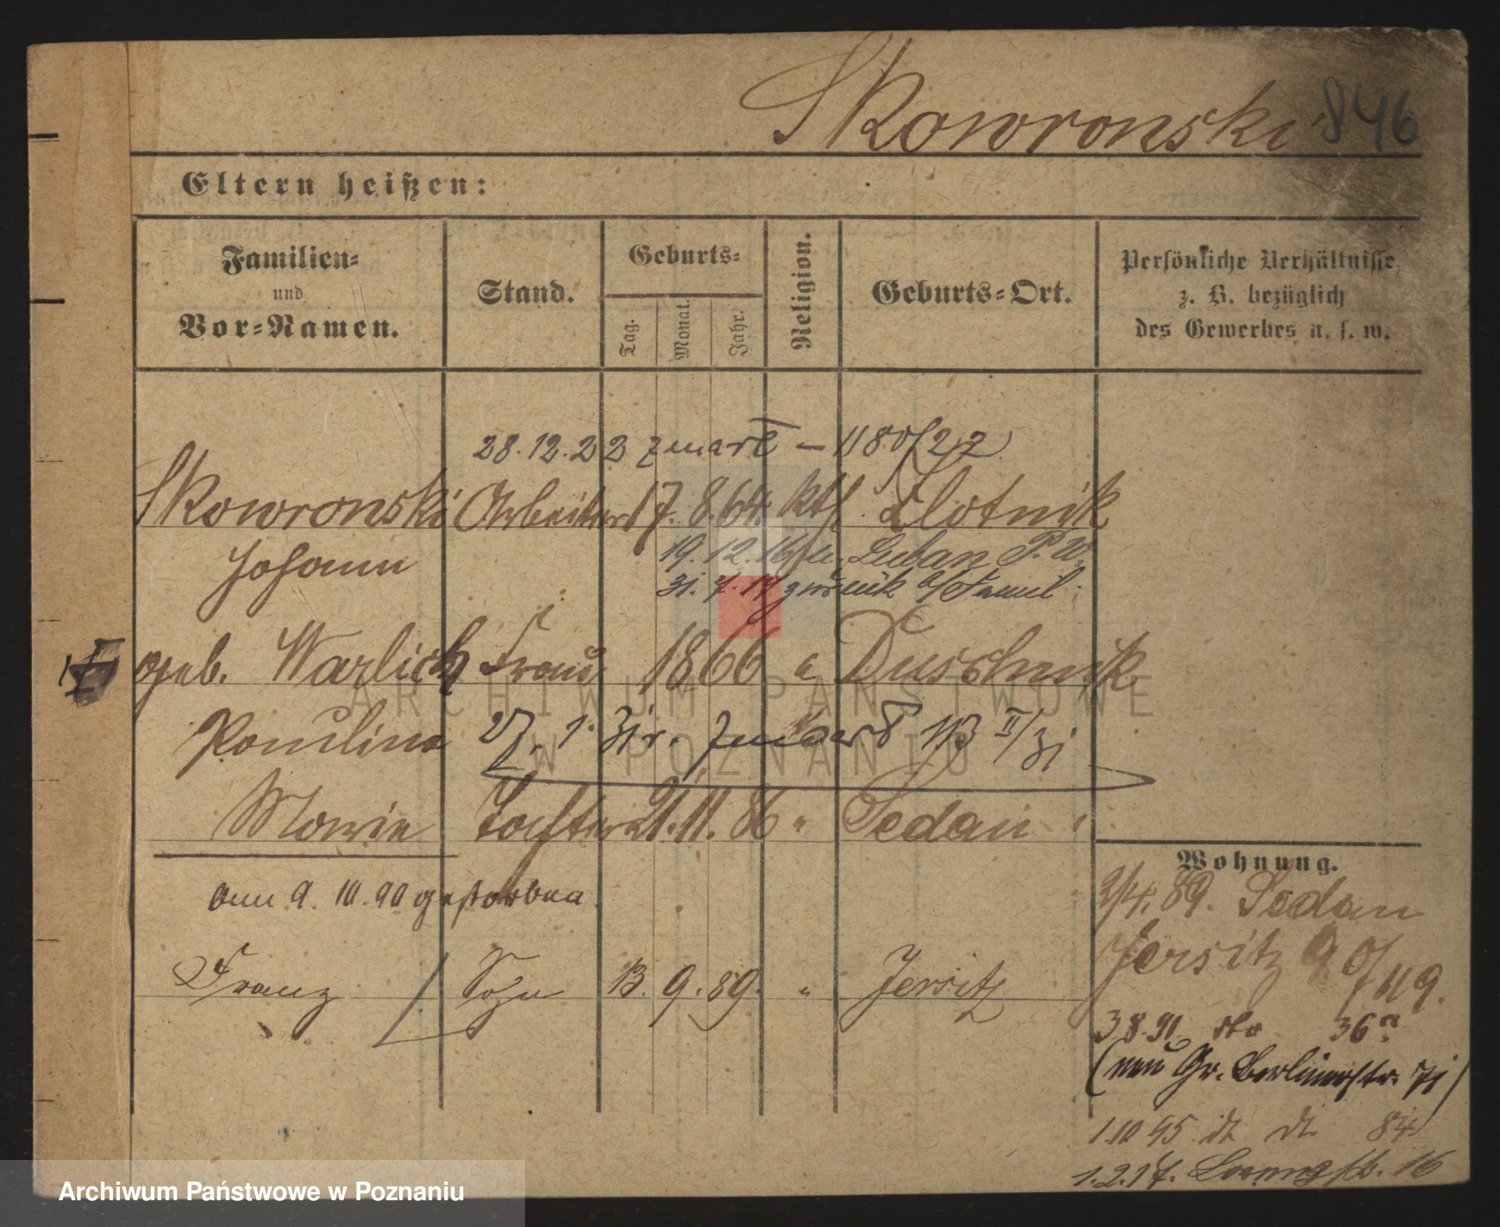 Skowronski 846
Eltern heißen:
Familien=
und
Vor=Namen.
Stand.
Geburts=
Tag.
Monat.
Jahr.
Religion.
Geburts=Ort.
Persönliche Verhältnisse,
z. B. bezüglich
des Gewerbes u. s. w.
28.12.22 zmarł – 1180/22
Skowronski Arbeiter 17. 8. 64. kth. Zlotnik
Johann
19.12.16 n. Luban P.W.
31. 7. 17 zurück
geb. Warlich Frau 1866 " Duschnik
Paulina 27. 1. 31 r. 113 II/31
Marie Tochter 21. 11. 86 " Sedan
am 9. 10. 90 gestorben
Franz Sohn 13. 9. 89. " Jersitz
Wohnung.
2/4. 89. Sedan
Jersitz 90/
119.
3 8. 91 dto 36a
(neu Gr. Berlinerstr. 71)
1 10 95 dt dt 84
1. 2. 17. 16
ARCHIWUM PAŃSTWOWE
W POZNANIU
Archiwum Państwowe w Poznaniu